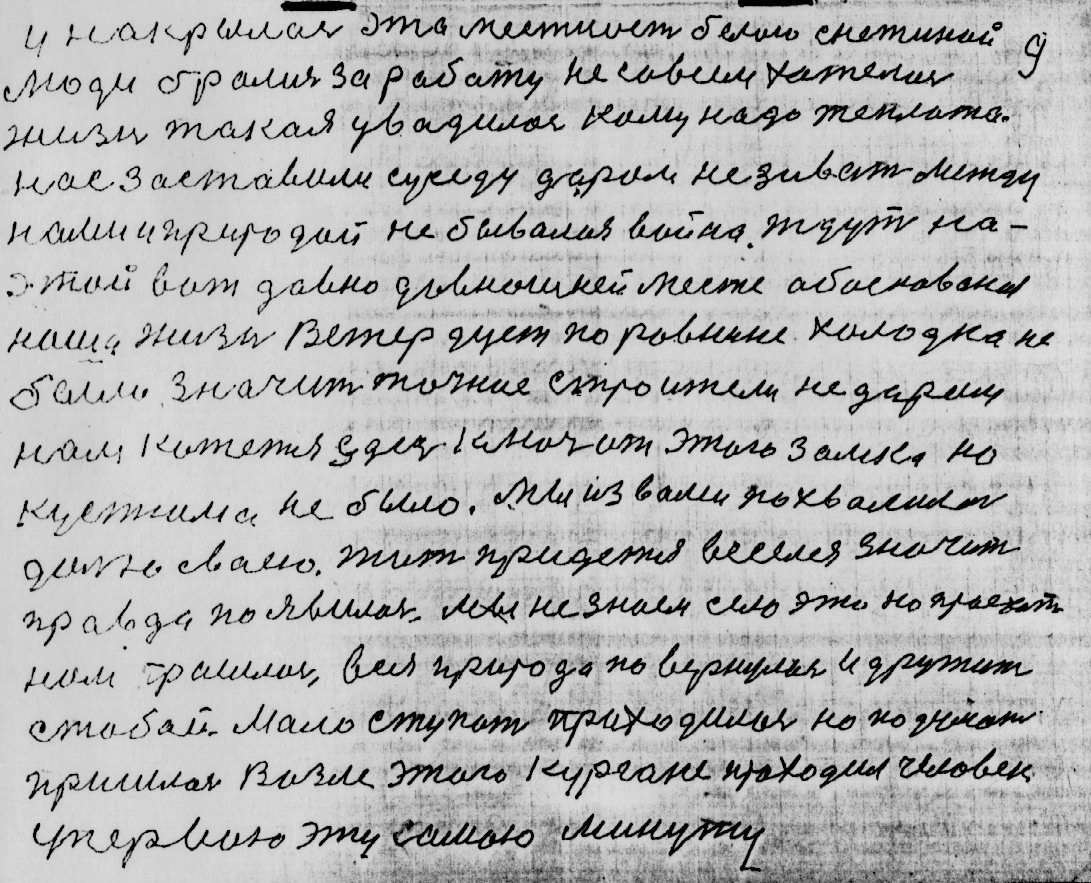 и накрылася эта местност белою снежиной 9
люди бралися за работу не совсем хателося
жизн такая увадилося кому надо теплота.
нас заставили суседу даром не зиват между
нами и природой не бывалая война, ждут на-
этой вот давно давношней месте обоснована
наша жизн Ветер дует по равнине холодна не
было значит точные строители не даром
нам кажется сдес ключ от этого замка но
кустика не было. мы из вами похвалилися
должо сваею. жит придется весело значит
правда появилося. мы не знаем село это но проехат
нам пришлося, вся природа повернулася и дружит
стобай. Мало ступат приходилося но подумат
пришлося Возле этого Кургане проходил человек
у первою эту самою минуту